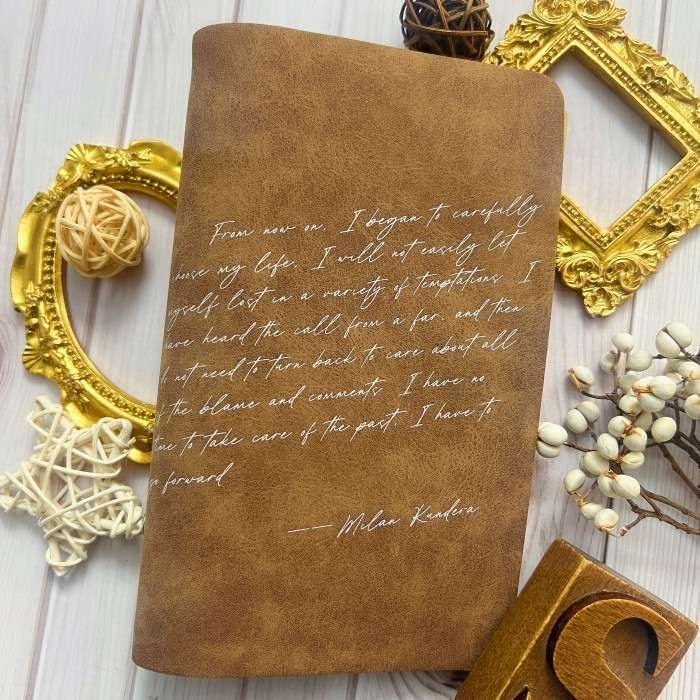 From now on, I began to carefully
hoose my life. I will not easily let
yself lost in a variety of temptations I
ave heard the call from a far. and then
o not need to turn back to care about all
f the blame and comments I have no
ime to take care of the past I have to
go forward
—— Milan Kundera
S